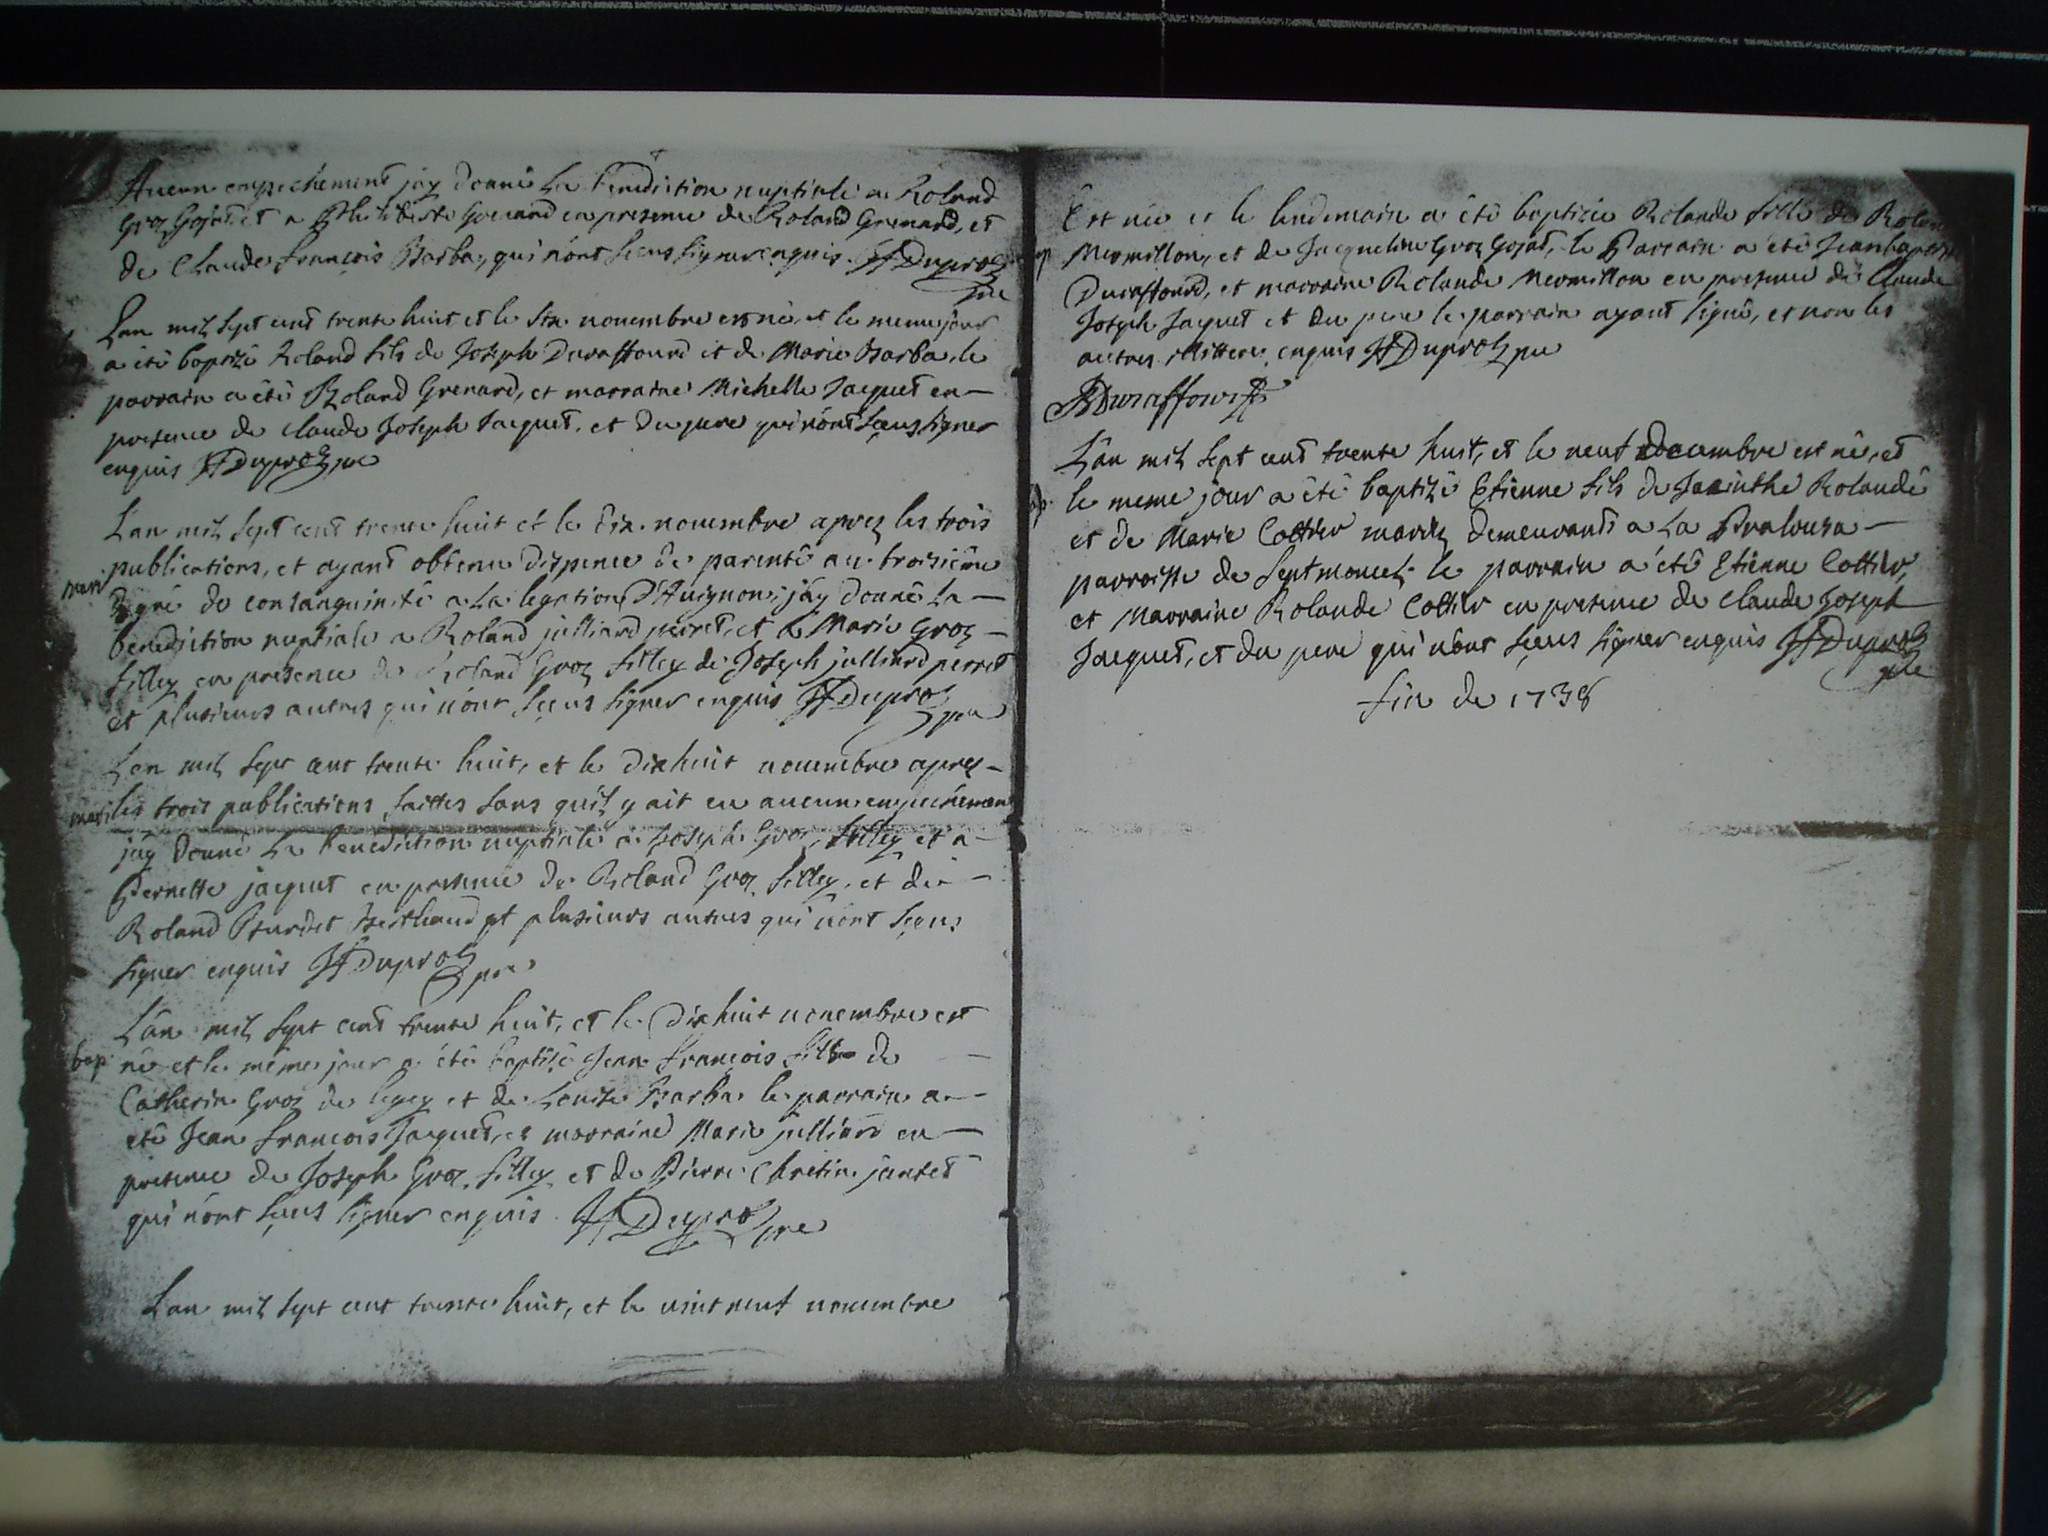 Aucun empechement jay donné La benediction nuptiale a Roland
Groz Gojat et a Philiberte Grenard en presence de Roland Grenard, et
de Claude françois Barba, qui n'ont sceus signer enquis JFDuproz
pre
Lan mil sept cent trente huit et le six nouembre est né, et le meme jour
a été baptizé Roland fils de Joseph Duraffourd et de Marie Barba, le
parrain a été Roland Grenard, et marraine Michelle Jacquet en
presence de Claude Joseph Jacquet, et du pere qui n'ont sceus signer
enquis JFDuproz pre
L'an mil sept cent trente huit et le dix nouembre aprez les trois
publications, et ayant obtenu dispence de parenté au troisiéme
mari
degré de consanguinité a La legation D'Auignon, jáy donné la
benediction nuptiale a Roland julliard perret, et a Marie Groz
filley en presence de Roland Groz filley de Joseph julliard perret
et plusieurs autres qui n'ont sceus signer enquis JFDuproz
pre
Lan mil sept cent trente huit, et le dixhuit nouembre aprez
mari les trois publications faittes sans qu'il y ait eu aucun empechement
jáy donné La benediction nuptiale a Joseph Groz filley et a
Pernette jacquet en presence de Roland Groz filley, et de
Roland Burdet Berthaud et plusieurs autres qui n'ont sceus
signer enquis JFDuproz
pre
L'an mil sept cent trente huit, et le dixhuit nouembre est
bap né et le méme jour a été baptizé Jean françois fils de
Catherin Groz de legey et de Louise Barba le parrain a
eté Jean françois Jacquet, et marraine Marie julliard en
presence de Joseph Groz filley et de Pierre Chretin jantet
qui n'ont sceus signer enquis JFDuproz pre
Lan mil sept cent trente huit, et le vint neuf nouembre
Est née et le lendemain a été baptizée Rolande fille de Roland
Mermillon, et de Jacqueline Groz Gojat, le Parrain a été Jean baptiste
Duraffourd, et marraine Rolande Mermillon en presence de Claude
Joseph Jacquet et du pere le parrain ayant signé, et non les
autres illitterez enquis JFDuproz pre
JBDuraffourd
L'an mil sept cent trente huit, et le neuf decembre est né, et
bap. le meme jour a été baptizé Etienne fils de Jacinthe Rolandé
et de Marie Cottier mariez demeurants a La Pralouza
parroisse de Septmoncel le parrain a été Etienne Cottier,
et Marraine Rolande Cottier en presence de Claude Joseph
Jacquet, et du pere qui n'ont sceus signer enquis JFDuproz
pre
fin de 1738